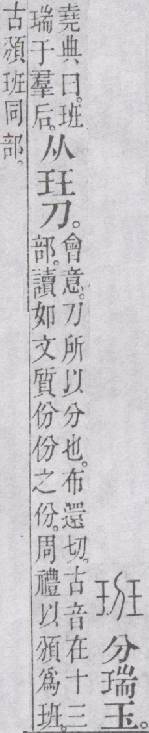 班 分瑞玉。
堯典曰。班
瑞于羣后。
从玨刀。
會意。刀所以分也。布還切。古音在十三
部。讀如文質份份之份。周禮以頒爲班。
古頒班同部。